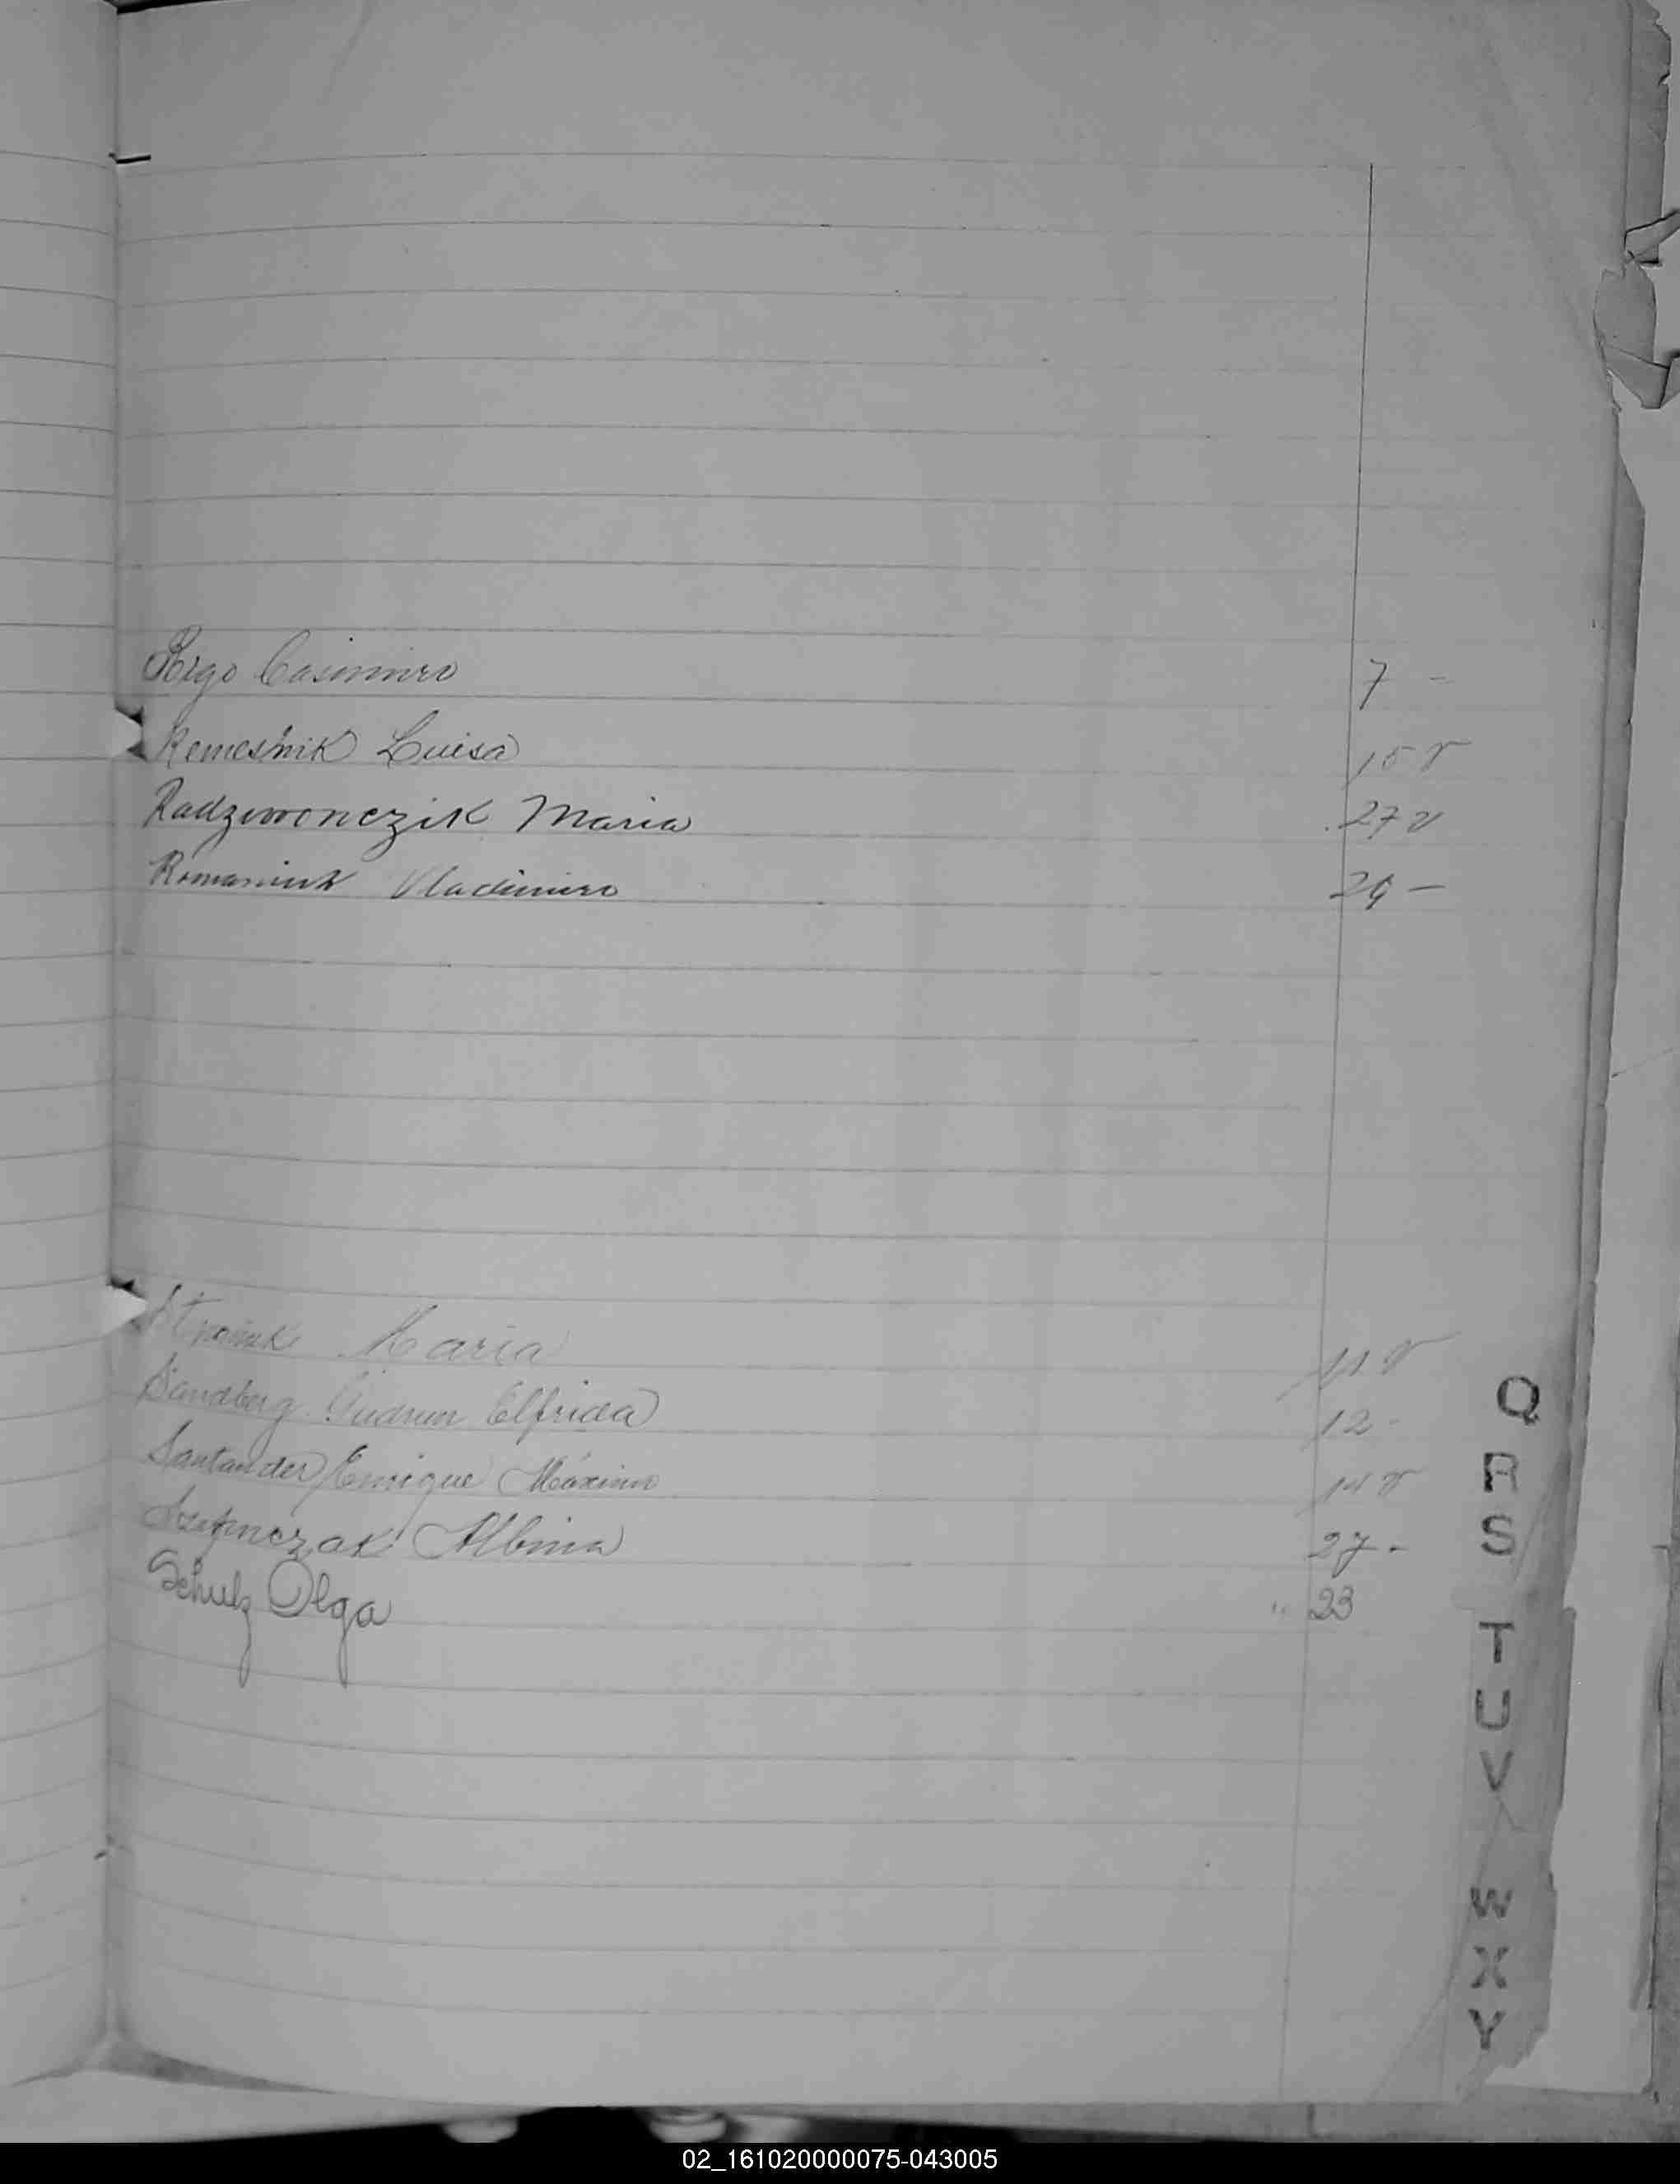 Rego Casimiro 7 -
Remesnik Luisa 15 v
Radziwonczik Maria 27 v
Romaniuk Vladimiro 29 -
Maria 11 v
Sandberg Gudrun Elfrida 12 -
Santander Enrique Máximo 14 v
Albina 27 -
Schulz Olga " 23
Q
R
S
T
U
V
W
X
Y
02_161020000075-043005